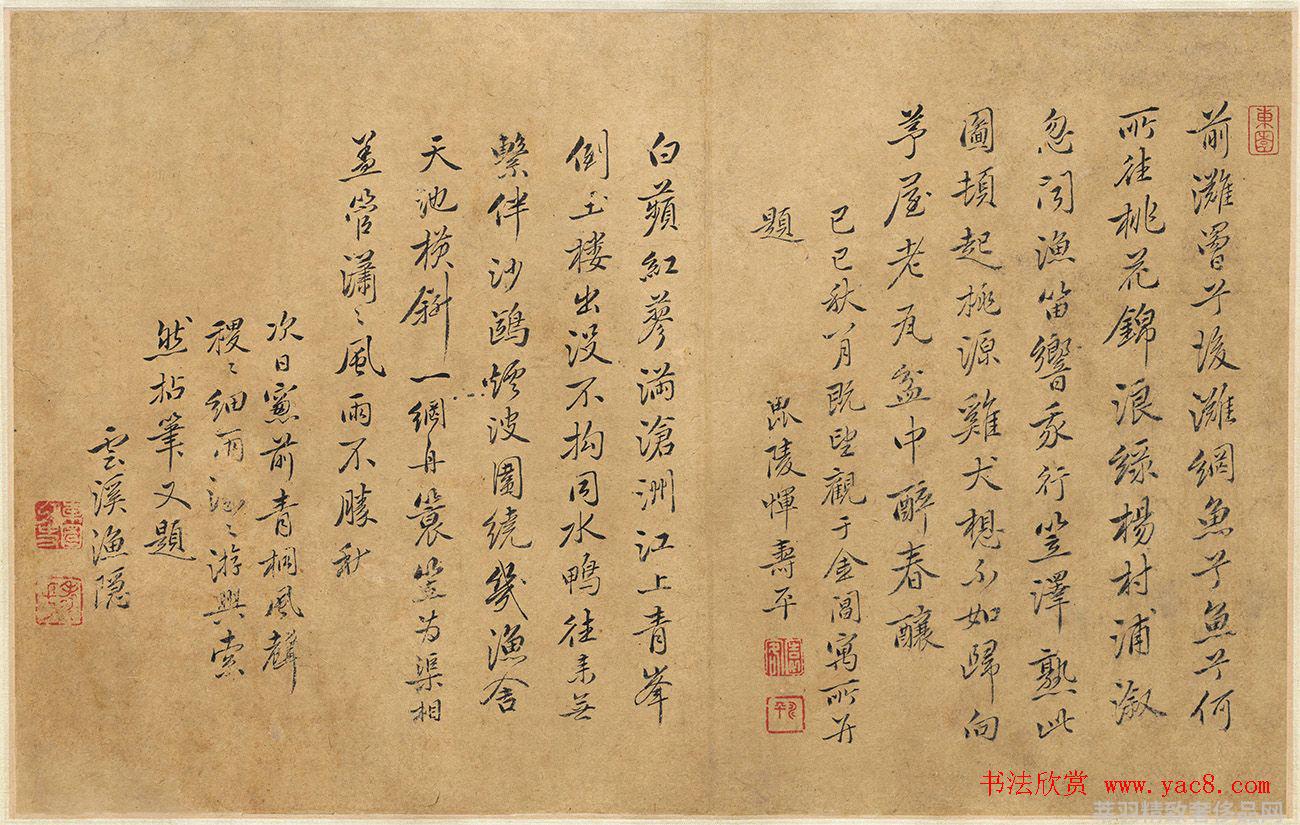 東園
前灘罾子後灘網魚子魚子何
所往桃花錦浪緑楊村浦溆
忽聞漁笛響我行笠澤熟此
圖頓起桃源雞犬想不如歸向
茅屋老瓦盆中醉春釀
己巳秋八月既望觀于金閶寓所并
題
毘陵惲壽平
白蘋紅蓼滿滄洲江上青峯
倒玉楼出没不拘同水鴨往来無
繫伴沙鷗煙波圍繞幾漁舍
天池橫斜一網舟簑笠为渠相
盖管瀟〻風雨不勝秋
次日窻前青桐風聲
稷〻細雨游興索
然拈筆又題
雲溪漁隠
書法欣赏 www.yac8.com